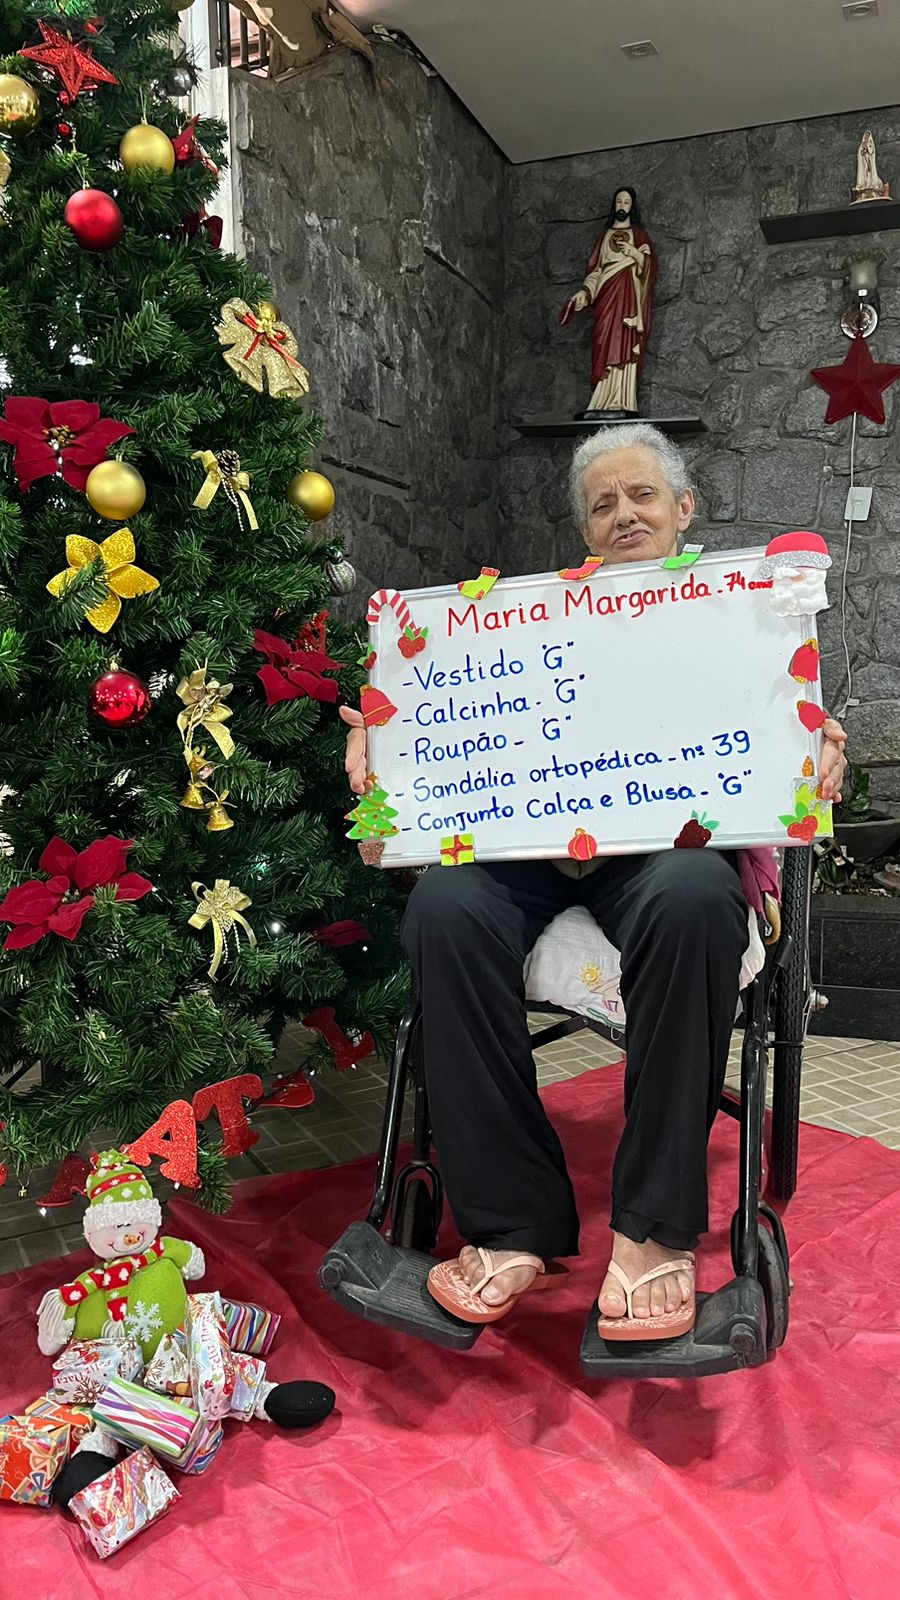 Maria Margarida. 74 anos
- Vestido "G"
- Calcinha. "G"
- Roupão - "G"
- Sandália ortopédica - nº 39
- Conjunto Calça e Blusa. "G"
AT
Feliz Natal